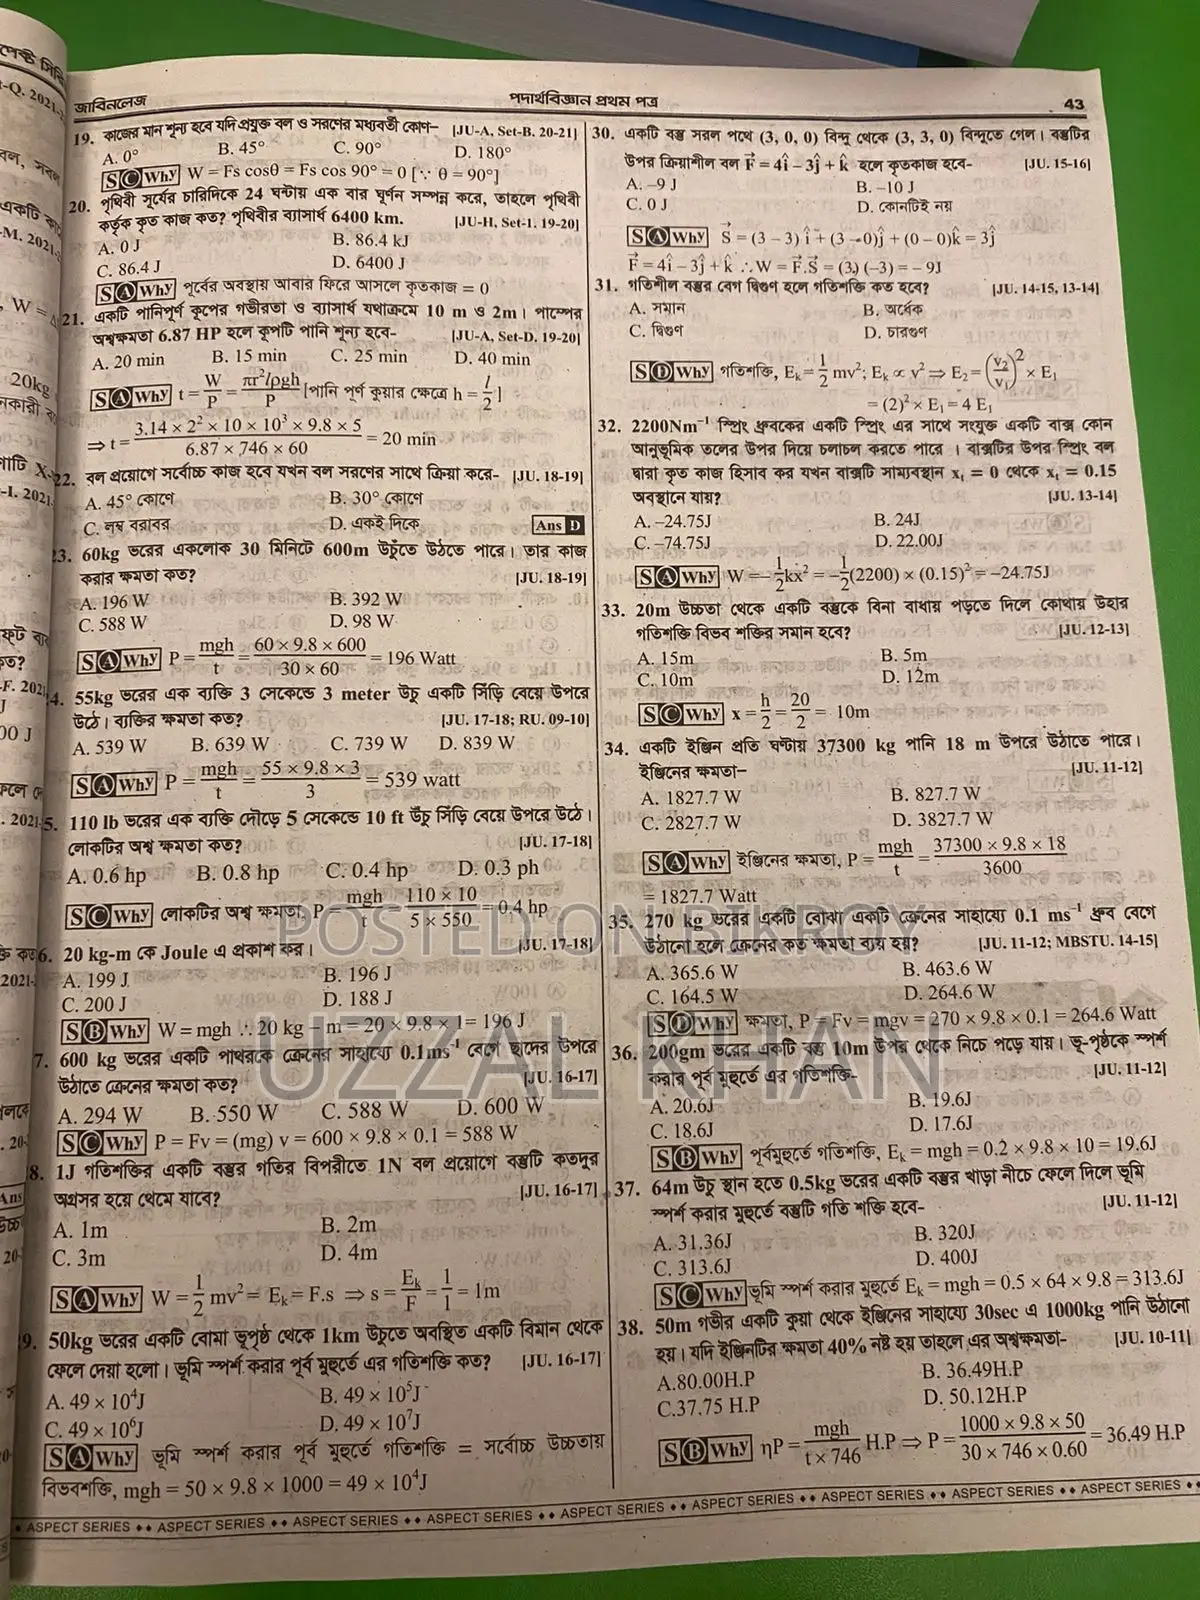 জাবিনলেজ
পদার্থবিজ্ঞান প্রথম পত্র
43
19. কাজের মান শূন্য হবে যদি প্রযুক্ত বল ও সরণের মধ্যবর্তী কোণ– [JU-A, Set-B. 20-21]
A. 0° B. 45° C. 90° D. 180°
S C Why W = Fs cosθ = Fs cos 90° = 0 [∵ θ = 90°]
20. পৃথিবী সূর্যের চারিদিকে 24 ঘন্টায় এক বার ঘূর্ণন সম্পন্ন করে, তাহলে পৃথিবী
কর্তৃক কৃত কাজ কত? পৃথিবীর ব্যাসার্ধ 6400 km. [JU-H, Set-1. 19-20]
A. 0 J B. 86.4 kJ
C. 86.4 J D. 6400 J
S A Why পূর্বের অবস্থায় আবার ফিরে আসলে কৃতকাজ = 0
21. একটি পানিপূর্ণ কূপের গভীরতা ও ব্যাসার্ধ যথাক্রমে 10 m ও 2m। পাম্পের
অশ্বক্ষমতা 6.87 HP হলে কূপটি পানি শূন্য হবে– [JU-A, Set-D. 19-20]
A. 20 min B. 15 min C. 25 min D. 40 min
S A Why t = W/P = πr²lρgh/P [পানি পূর্ণ কুয়ার ক্ষেত্রে h = l/2]
⇒ t = 3.14 × 2² × 10 × 10³ × 9.8 × 5 / 6.87 × 746 × 60 = 20 min
22. বল প্রয়োগে সর্বোচ্চ কাজ হবে যখন বল সরণের সাথে ক্রিয়া করে- [JU. 18-19]
A. 45° কোণে B. 30° কোণে
C. লম্ব বরাবর D. একই দিকে Ans D
23. 60kg ভরের একলোক 30 মিনিটে 600m উচুঁতে উঠতে পারে। তার কাজ
করার ক্ষমতা কত? [JU. 18-19]
A. 196 W B. 392 W
C. 588 W D. 98 W
S A Why P = mgh/t = 60 × 9.8 × 600 / 30 × 60 = 196 Watt
4. 55kg ভরের এক ব্যক্তি 3 সেকেন্ডে 3 meter উচু একটি সিঁড়ি বেয়ে উপরে
উঠে। ব্যক্তির ক্ষমতা কত? [JU. 17-18; RU. 09-10]
A. 539 W B. 639 W C. 739 W D. 839 W
S A Why P = mgh/t = 55 × 9.8 × 3 / 3 = 539 watt
5. 110 lb ভরের এক ব্যক্তি দৌড়ে 5 সেকেন্ডে 10 ft উঁচু সিঁড়ি বেয়ে উপরে উঠে।
লোকটির অশ্ব ক্ষমতা কত? [JU. 17-18]
A. 0.6 hp B. 0.8 hp C. 0.4 hp D. 0.3 ph
S C Why লোকটির অশ্ব ক্ষমতা, P = mgh/t = 110 × 10 / 5 × 550 = 0.4 hp
6. 20 kg-m কে Joule এ প্রকাশ কর। [JU. 17-18]
A. 199 J B. 196 J
C. 200 J D. 188 J
S B Why W = mgh ∴ 20 kg – m = 20 × 9.8 × 1= 196 J
7. 600 kg ভরের একটি পাথরকে ক্রেনের সাহায্যে 0.1ms⁻¹ বেগে ছাদের উপরে
উঠাতে ক্রেনের ক্ষমতা কত? [JU. 16-17]
A. 294 W B. 550 W C. 588 W D. 600 W
S C Why P = Fv = (mg) v = 600 × 9.8 × 0.1 = 588 W
8. 1J গতিশক্তির একটি বস্তুর গতির বিপরীতে 1N বল প্রয়োগে বস্তুটি কতদূর
অগ্রসর হয়ে থেমে যাবে? [JU. 16-17]
A. 1m B. 2m
C. 3m D. 4m
S A Why W = 1/2 mv² = E_k = F.s ⇒ s = E_k/F = 1/1 = 1m
9. 50kg ভরের একটি বোমা ভূপৃষ্ঠ থেকে 1km উচুতে অবস্থিত একটি বিমান থেকে
ফেলে দেয়া হলো। ভূমি স্পর্শ করার পূর্ব মুহুর্তে এর গতিশক্তি কত? [JU. 16-17]
A. 49 × 10⁴J B. 49 × 10⁵J
C. 49 × 10⁶J D. 49 × 10⁷J
S A Why ভূমি স্পর্শ করার পূর্ব মুহুর্তে গতিশক্তি = সর্বোচ্চ উচ্চতায়
বিভবশক্তি, mgh = 50 × 9.8 × 1000 = 49 × 10⁴J
30. একটি বস্তু সরল পথে (3, 0, 0) বিন্দু থেকে (3, 3, 0) বিন্দুতে গেল। বস্তুটির
উপর ক্রিয়াশীল বল F⃗ = 4î – 3ĵ + k̂ হলে কৃতকাজ হবে- [JU. 15-16]
A. –9 J B. –10 J
C. 0 J D. কোনটিই নয়
S A Why S⃗ = (3 – 3) î + (3 –0)ĵ + (0 – 0)k̂ = 3ĵ
F⃗ = 4î – 3ĵ + k̂ ∴ W = F⃗.S⃗ = (3) (–3) = – 9J
31. গতিশীল বস্তুর বেগ দ্বিগুণ হলে গতিশক্তি কত হবে? [JU. 14-15, 13-14]
A. সমান B. অর্ধেক
C. দ্বিগুণ D. চারগুণ
S D Why গতিশক্তি, E_k = 1/2 mv²; E_k ∝ v² ⇒ E₂ = (v₂/v₁)² × E₁
= (2)² × E₁ = 4 E₁
32. 2200Nm⁻¹ স্প্রিং ধ্রুবকের একটি স্প্রিং এর সাথে সংযুক্ত একটি বাক্স কোন
আনুভূমিক তলের উপর দিয়ে চলাচল করতে পারে । বাক্সটির উপর স্প্রিং বল
দ্বারা কৃত কাজ হিসাব কর যখন বাক্সটি সাম্যবস্থান x₁ = 0 থেকে x₁ = 0.15
অবস্থানে যায়? [JU. 13-14]
A. –24.75J B. 24J
C. –74.75J D. 22.00J
S A Why W = – 1/2 kx² = – 1/2 (2200) × (0.15)² = –24.75J
33. 20m উচ্চতা থেকে একটি বস্তুকে বিনা বাধায় পড়তে দিলে কোথায় উহার
গতিশক্তি বিভব শক্তির সমান হবে? [JU. 12-13]
A. 15m B. 5m
C. 10m D. 12m
S C Why x = h/2 = 20/2 = 10m
34. একটি ইঞ্জিন প্রতি ঘণ্টায় 37300 kg পানি 18 m উপরে উঠাতে পারে।
ইঞ্জিনের ক্ষমতা– [JU. 11-12]
A. 1827.7 W B. 827.7 W
C. 2827.7 W D. 3827.7 W
S A Why ইঞ্জিনের ক্ষমতা, P = mgh/t = 37300 × 9.8 × 18 / 3600
= 1827.7 Watt
35. 270 kg ভরের একটি বোঝা একটি ক্রেনের সাহায্যে 0.1 ms⁻¹ ধ্রুব বেগে
উঠানো হলে ক্রেনের কত ক্ষমতা ব্যয় হয়? [JU. 11-12; MBSTU. 14-15]
A. 365.6 W B. 463.6 W
C. 164.5 W D. 264.6 W
S D Why ক্ষমতা, P = Fv = mgv = 270 × 9.8 × 0.1 = 264.6 Watt
36. 200gm ভরের একটি বস্তু 10m উপর থেকে নিচে পড়ে যায়। ভূ-পৃষ্ঠকে স্পর্শ
করার পূর্ব মুহুর্তে এর গতিশক্তি- [JU. 11-12]
A. 20.6J B. 19.6J
C. 18.6J D. 17.6J
S B Why পূর্বমুহুর্তে গতিশক্তি, E_k = mgh = 0.2 × 9.8 × 10 = 19.6J
37. 64m উচু স্থান হতে 0.5kg ভরের একটি বস্তুর খাড়া নীচে ফেলে দিলে ভূমি
স্পর্শ করার মুহুর্তে বস্তুটি গতি শক্তি হবে- [JU. 11-12]
A. 31.36J B. 320J
C. 313.6J D. 400J
S C Why ভূমি স্পর্শ করার মুহুর্তে E_k = mgh = 0.5 × 64 × 9.8 = 313.6J
38. 50m গভীর একটি কুয়া থেকে ইঞ্জিনের সাহায্যে 30sec এ 1000kg পানি উঠানো
হয়। যদি ইঞ্জিনটির ক্ষমতা 40% নষ্ট হয় তাহলে এর অশ্বক্ষমতা- [JU. 10-11]
A.80.00H.P B. 36.49H.P
C.37.75 H.P D. 50.12H.P
S B Why ηP = mgh / t × 746 H.P ⇒ P = 1000 × 9.8 × 50 / 30 × 746 × 0.60 = 36.49 H.P
ASPECT SERIES ♦♦ ASPECT SERIES ♦♦ ASPECT SERIES ♦♦ ASPECT SERIES ♦♦ ASPECT SERIES ♦♦ ASPECT SERIES ♦♦ ASPECT SERIES ♦♦ ASPECT SERIES ♦♦ ASPECT SERIES
POSTED ON BIKROY
UZZAL KHAN